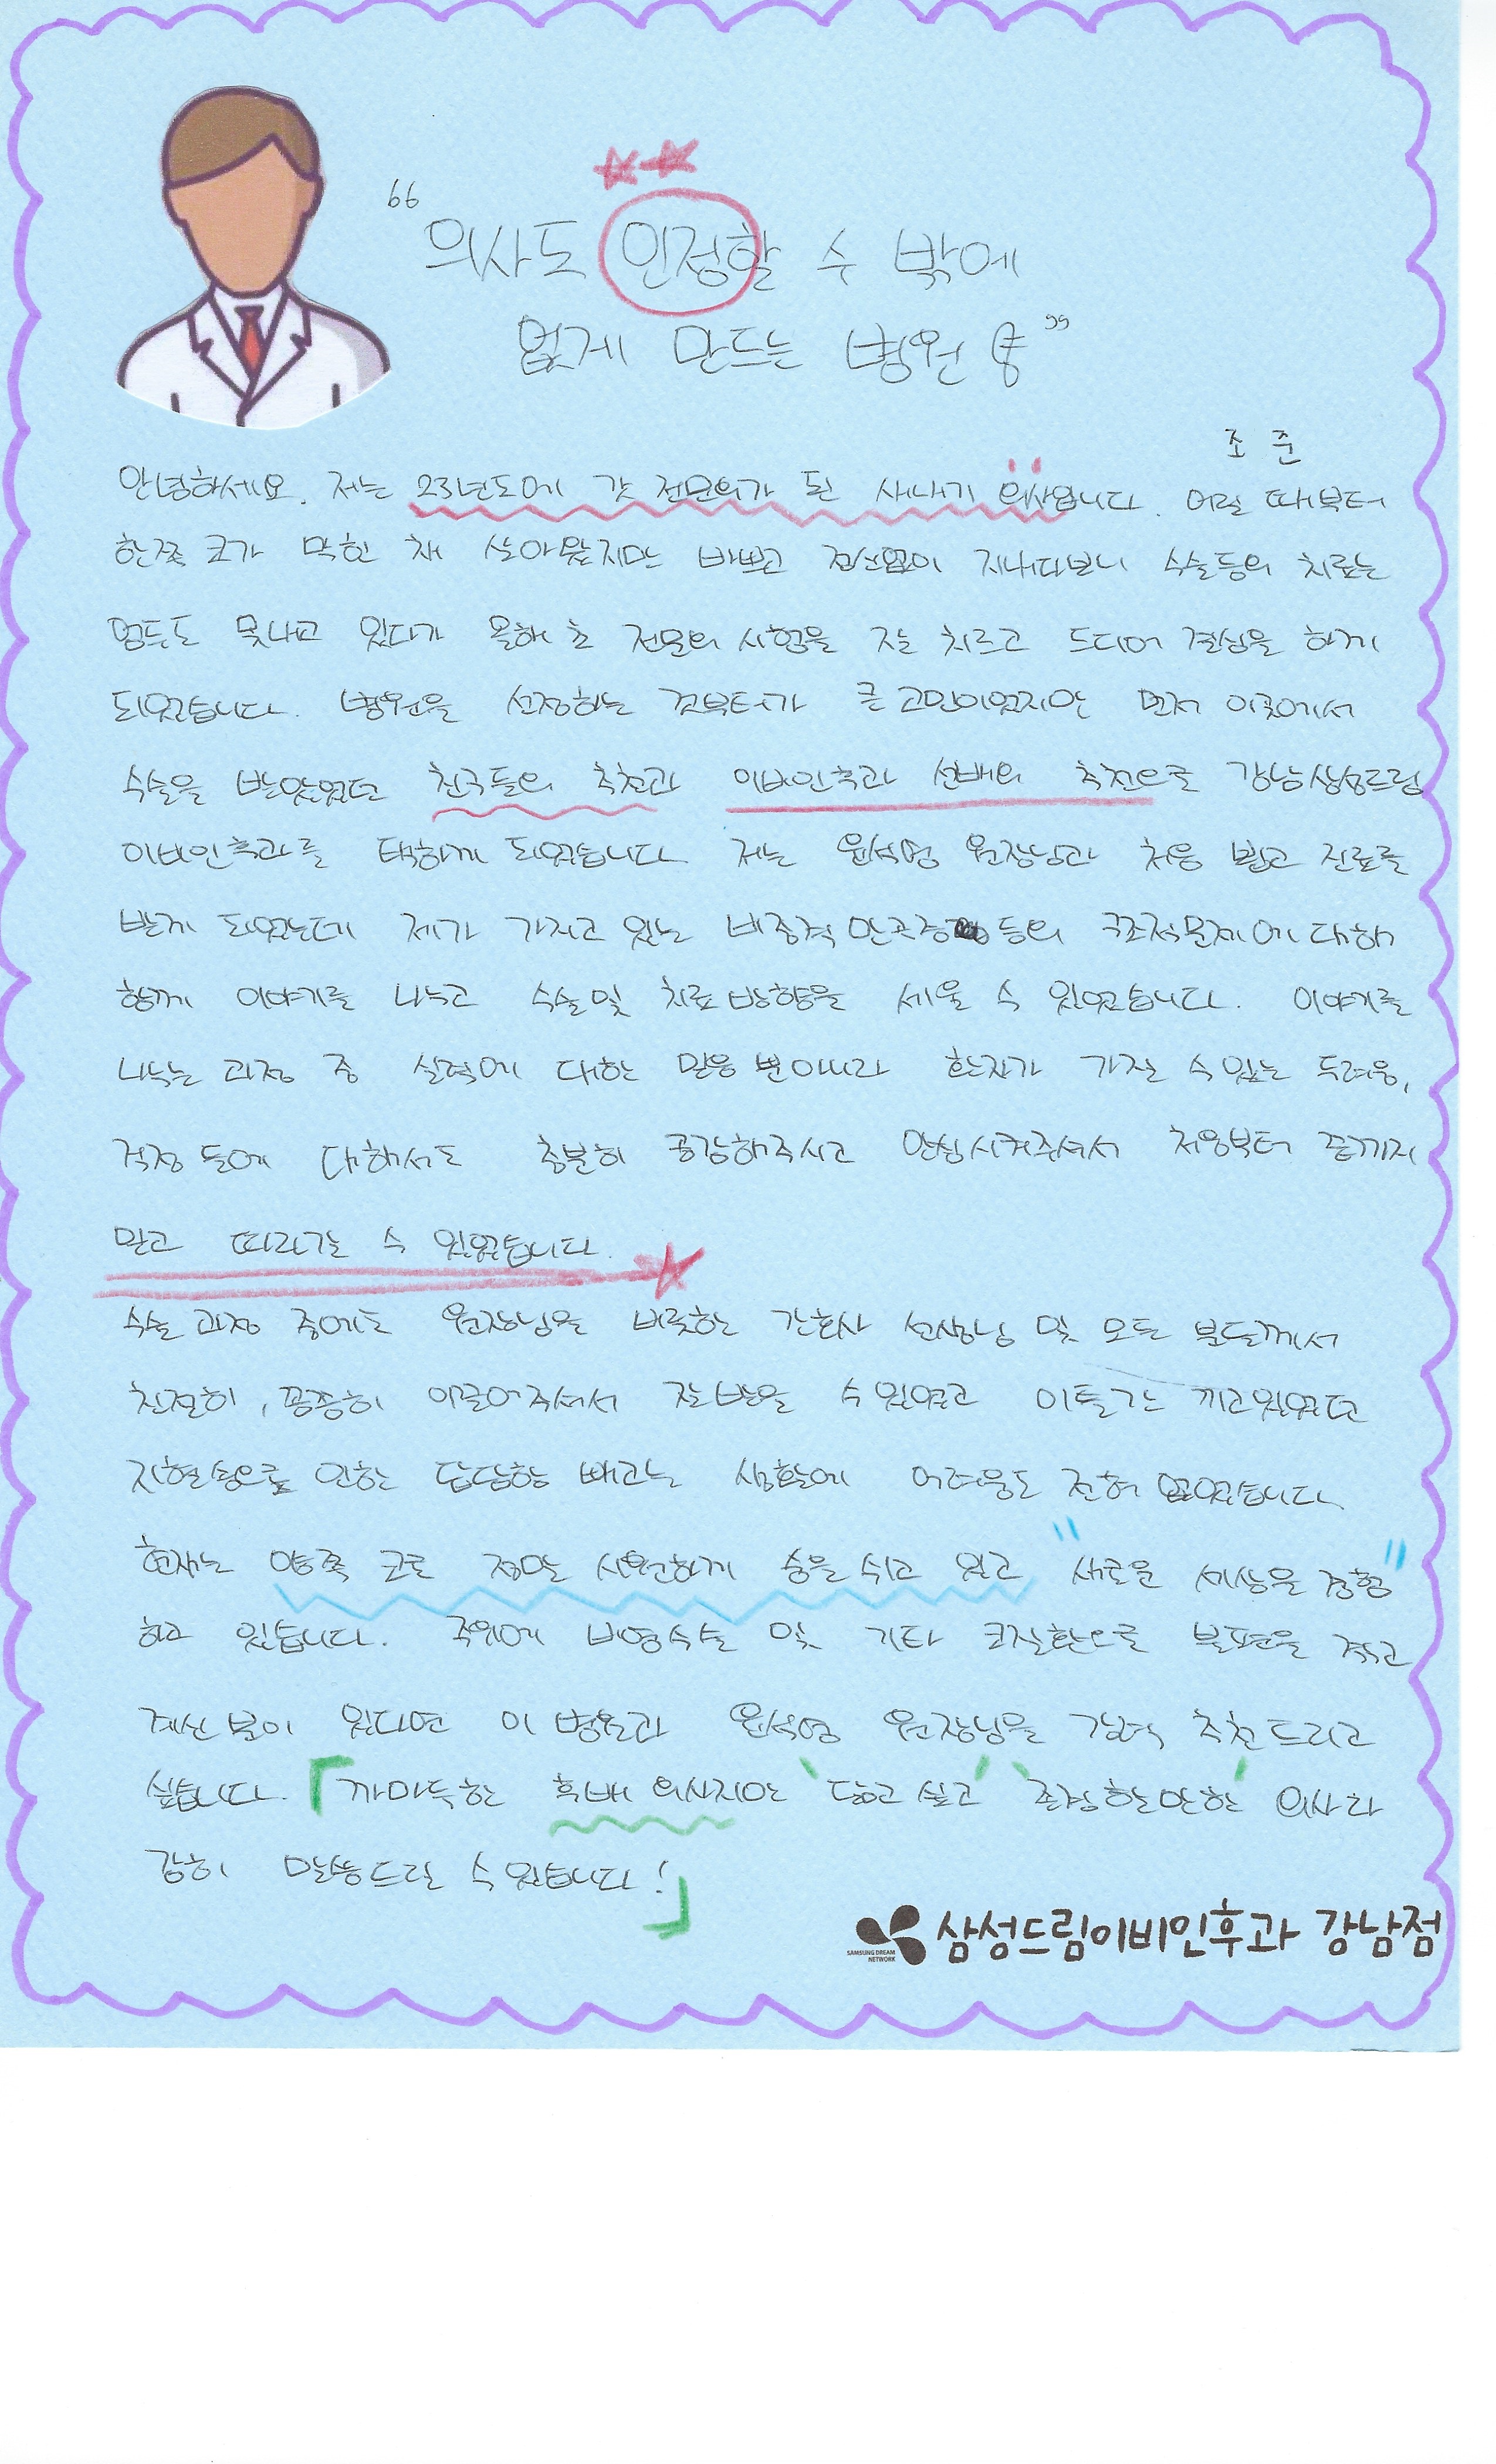 “의사도 인정할 수 밖에
없게 만드는 병원”
조 준
안녕하세요. 저는 23년도에 갓 전문의가 된 새내기 의사입니다. 어릴 때부터
한쪽 코가 막힌 채 살아왔지만 바쁘고 정신없이 지내다보니 수술등의 치료는
엄두도 못내고 있다가 올해 초 전문의 시험을 잘 치르고 드디어 결심을 하게
되었습니다. 병원을 선정하는 것부터가 큰 고민이었지만 먼저 이곳에서
수술을 받았었던 친구들의 추천과 이비인후과 선배의 추천으로 강남삼성드림
이비인후과를 택하게 되었습니다. 저는 윤석영 원장님과 처음 뵙고 진료를
받게 되었는데 제가 가지고 있는 비중격 만곡증 등의 구조적문제에 대해
함께 이야기를 나누고 수술 및 치료 방향을 세울 수 있었습니다. 이야기를
나누는 과정 중 실력에 대한 믿음 뿐아니라 환자가 가질 수 있는 두려움,
걱정 등에 대해서도 충분히 공감해주시고 안심시켜주셔서 처음부터 끝까지
믿고 따라갈 수 있었습니다.
수술 과정 중에도 원장님을 비롯한 간호사 선생님 및 모든 분들께서
친절히, 꼼꼼히 이끌어주셔서 잘 받을 수 있었고 이틀간 끼고있었던
지혈솜으로 인한 답답함 빼고는 생활에 어려움도 전혀 없었습니다.
현재는 양쪽 코로 정말 시원하게 숨을 쉬고 있고 "새로운 세상을 경험"
하고 있습니다. 주위에 비염수술 및 기타 코질환으로 불편을 겪고
계신 분이 있다면 이 병원과 윤석영 원장님을 강력 추천드리고
싶습니다. 「까마득한 후배 의사지만 '닮고 싶고' '존경할만한' 의사라
감히 말씀드릴 수 있습니다!」
SAMSUNG DREAM
NETWORK
삼성드림이비인후과 강남점